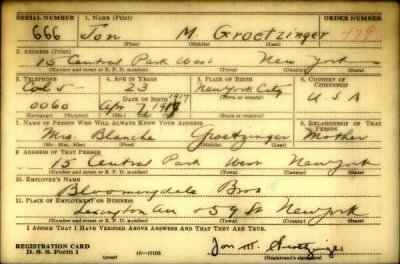 SERIAL NUMBER 1. NAME (Print) ORDER NUMBER
666 Jon M. Groetzinger 479
(First) (Middle) (Last)
2. ADDRESS (Print)
15 Central Park West New York
(Number and street or R. F. D. number) (Town) (County) (State)
3. TELEPHONE 4. AGE IN YEARS 5. PLACE OF BIRTH 6. COUNTRY OF CITIZENSHIP
Col 5- 23 New York City
DATE OF BIRTH 1917 (Town or county) U.S.A
0060 Apr 7
(Exchange) (Number) (Mo.) (Day) (Yr.) (State or country)
7. NAME OF PERSON WHO WILL ALWAYS KNOW YOUR ADDRESS 8. RELATIONSHIP OF THAT PERSON
Mrs Blanche Groetzinger Mother
(Mr., Mrs., Miss) (First) (Middle) (Last)
9. ADDRESS OF THAT PERSON
15 Central Park West New York
(Number and street or R. F. D. number) (Town) (County) (State)
10. EMPLOYER'S NAME
Bloomingdale Bros
11. PLACE OF EMPLOYMENT OR BUSINESS
Lexington Ave 59 St New York
(Number and street or R. F. D. number) (Town) (County) (State)
I AFFIRM THAT I HAVE VERIFIED ABOVE ANSWERS AND THAT THEY ARE TRUE.
REGISTRATION CARD
D. S. S. Form 1 (over) 16-17105 Jon M. Groetzinger
(Registrant's signature)